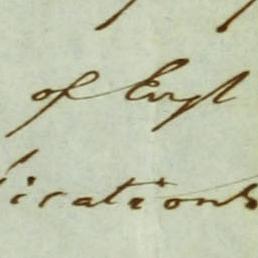 of Engl
ications